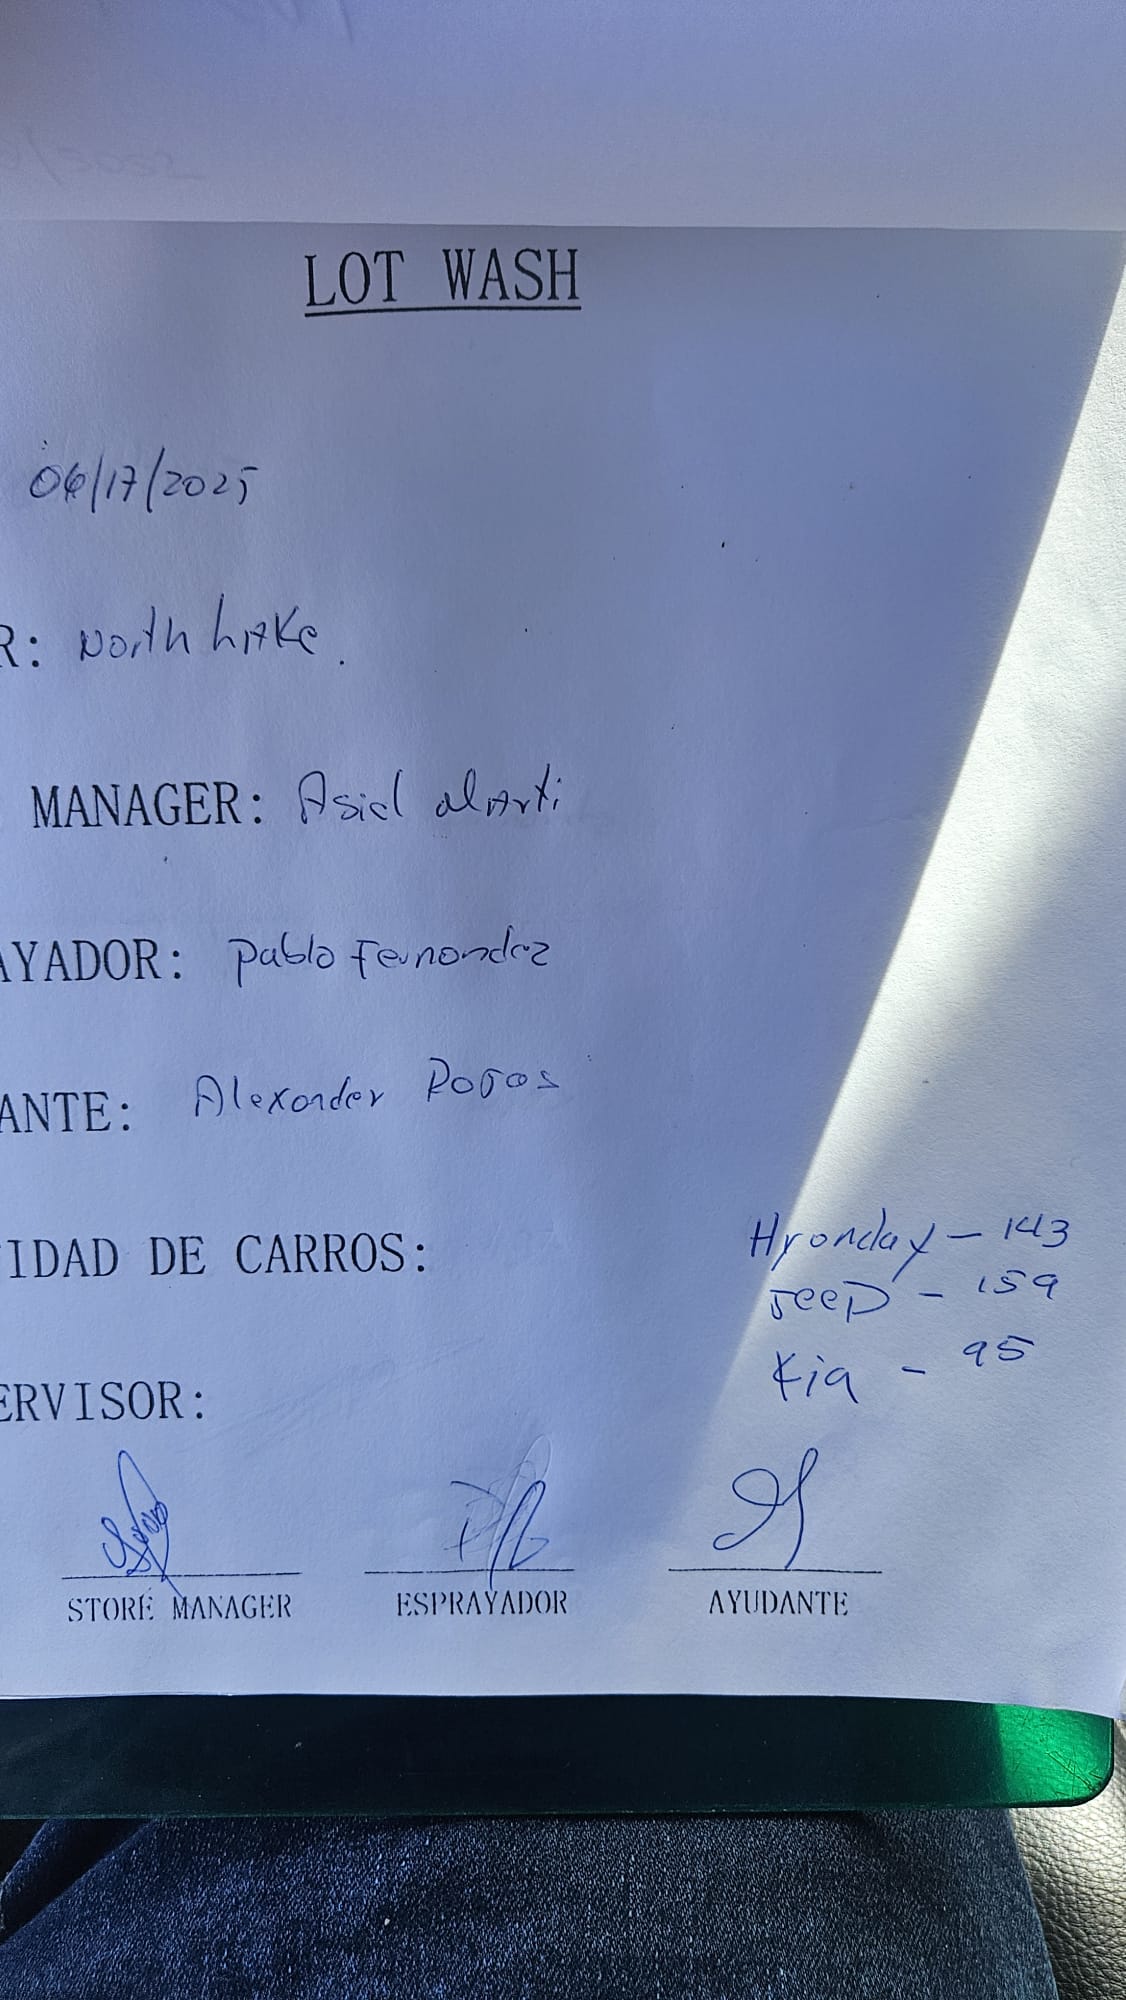 LOT WASH
06/17/2025
R: North Lake.
MANAGER: Asiel alarti
AYADOR: Pablo Fernandez
ANTE: Alexander
IDAD DE CARROS:
Hyonday - 143
Jeep - 159
Kia - 95
ERVISOR:
STORE MANAGER ESPRAYADOR AYUDANTE